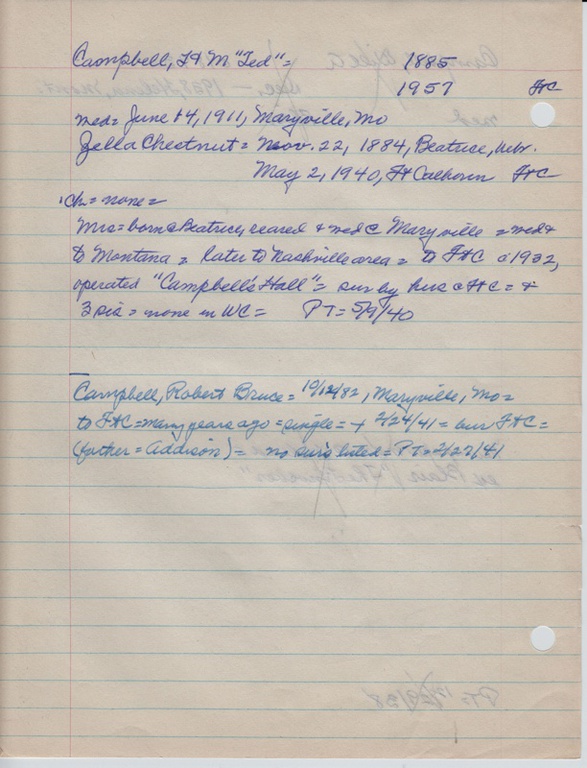 Campbell, T & M "Ted" = 1885
1957 FtC
med = June 14, 1911, Maryville, Mo
Zella Chestnut = Nov. 22, 1884, Beatrice, Nebr.
May 2, 1940, Ft Calhoun FtC
Ch = none =
Mrs = born @ Beatrice, reared & med @ Maryville = med &
to Montana = later to Nashville area = to FtC c 1932,
operated "Campbell's Hall" = sur by hus @ FtC = &
3 sis = none in WC = PT = 5/9/40
Campbell, Robert Bruce = 10/12/82, Maryville, Mo =
to FtC = many years ago = single = + 2/24/41 = bur FtC =
(father = Addison) = no surs listed = PT = 2/27/41